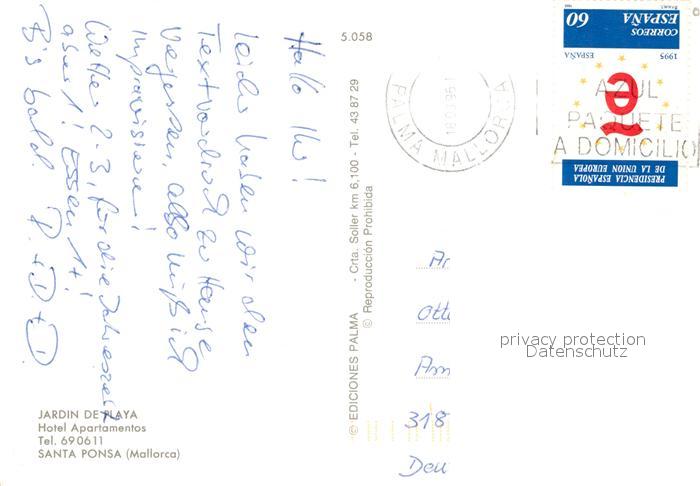 Hallo Ihr!
Leider haben wir den
Textvordruck zu Hause
vergessen, also muß ich
improvisieren!
Wetter 2-3, für die Jahreszeit
aber 1! Essen 1+!
Bis bald.
JARDIN DE PLAYA
Hotel Apartamentos
Tel. 690611
SANTA PONSA (Mallorca)
5.058
© EDICIONES PALMA - Crta. Soller km 6,100 - Tel. 43 87 29
© Reproducción Prohibida
PALMA MALLORCA
AZUL
PAQUETE
A DOMICILIO
60
CORREOS
ESPAÑA
1995
ESPAÑA
PRESIDENCIA ESPAÑOLA
DE LA UNION EUROPEA
Ar
Otto
Am
318
Deu
privacy protection
Datenschutz